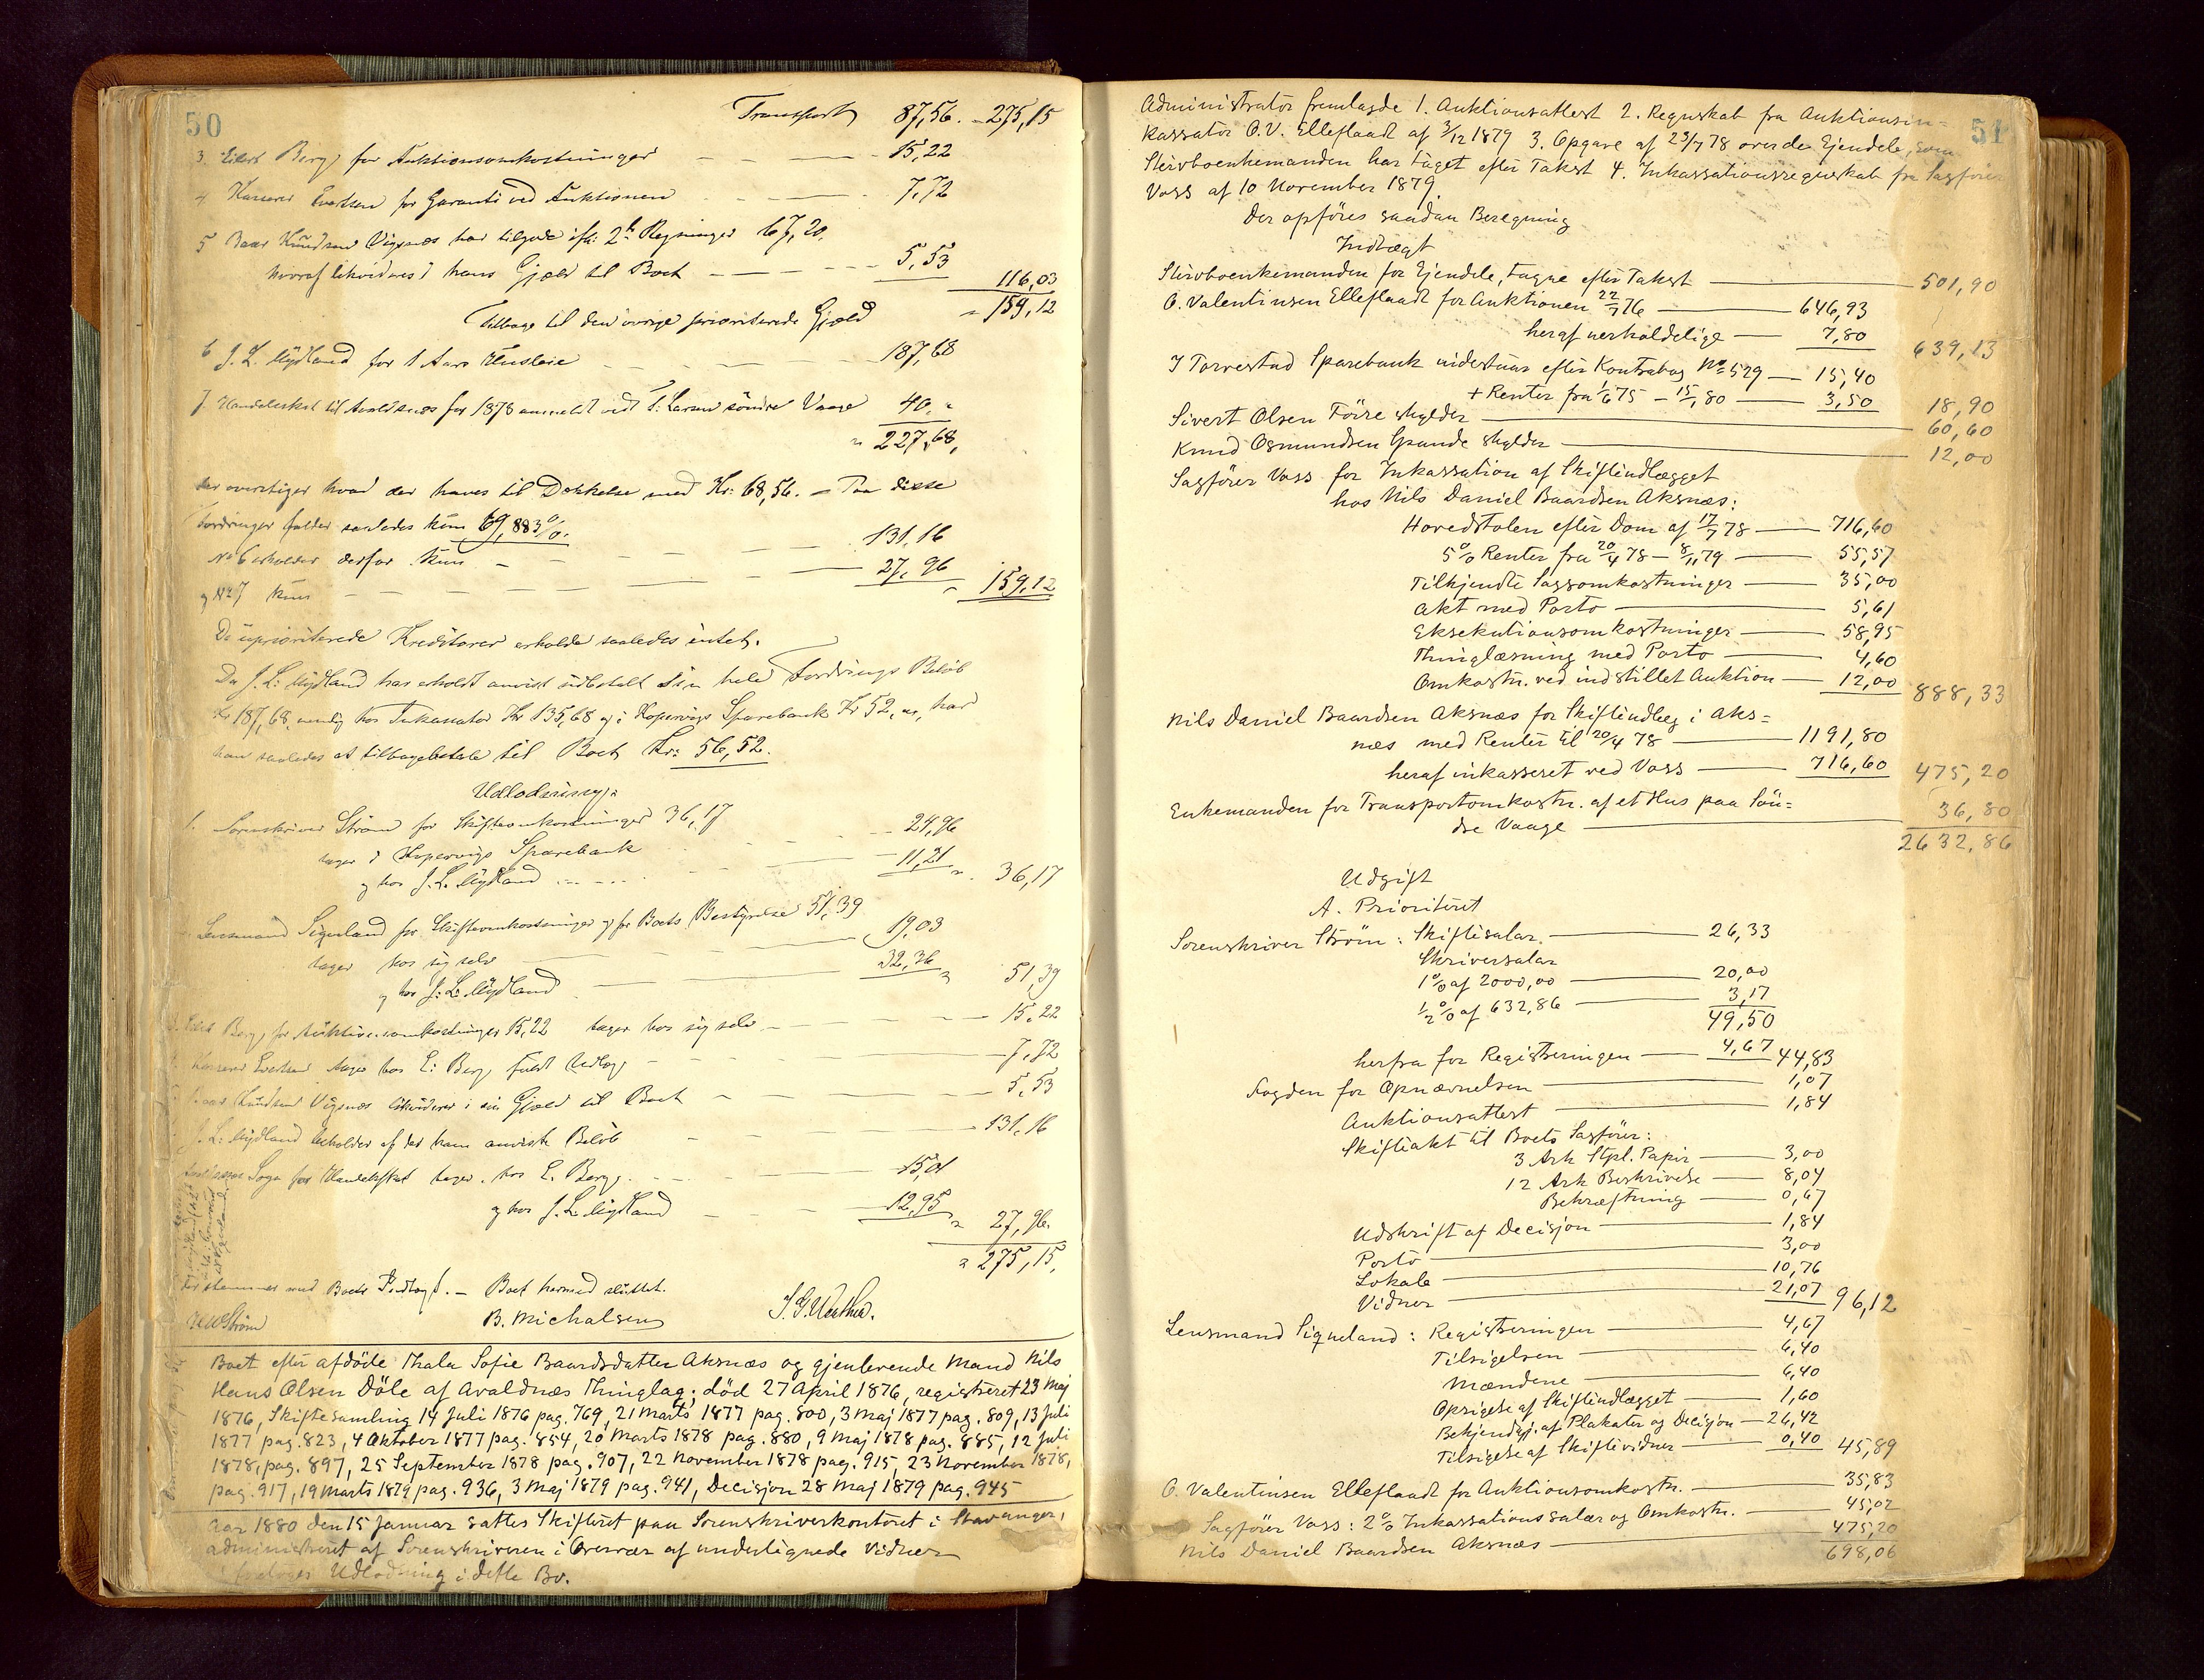 50
Transport 87,56. - 275,15
3. Eilert Berg, for Auktionsomkostninger - - - 15,22
4 Kasserer Evertsen for Garanti ved Auktionen - - - 7,72
5 Baar Knudsen Vigsnæs har tilgode ifl: 2de Regninger 67,20.
hvoraf likvideres i hans Gjæld til Boet - - - - 5,53
116,03
Tilbage til den øvrige prioriterede Gjæld " 159,12
6 J. L. Mydland for 1 Aars Husleie - - - 187,68
7. Handelsskat til Avaldsnæs for 1878 anmeldt ved T. Larsen søndre Vaage 40. "
" 227,68,
der overstiger hvad der haves til Dækkelse med Kr: 68,56. - Paa disse
Fordringer falder saaledes kun 69,883 %.
No 6 erholder derfor kun - - - - 131,16
og No 7 kun - - - - 27,96 " 159,12
De uprioriterede Kreditorer erholder saaledes intet.
Da J. L. Mydland har erholdt anvist udbetalt sin hele Fordrings Beløb
Kr 187,68 nemlig hos Inkassator Kr 135,68 og i Kopervigs Sparebank Kr 52,00, har
han saaledes at tilbagebetale til Boet Kr: 56,52.
Udlodning:
1. Sorenskriver Strøm for Skifteomkostninger 36,17
tager i Kopervigs Sparebank - - 24,96
og hos J. L. Mydland - - - 11,21 " 36,17
Lensmand Siqueland for Skifteomkostninger og for Boets Bestyrelse 51,39
tager hos sig selv - - 19,03
og hos J. L. Mydland - - 32,36 " 51,39
Eilert Berg, for Auktionsomkostninger 15,22 tager hos sig selv - - - 15,22
Kasserer Evertsen tager hos E. Berg, fuldt Udlæg - - - 7,72
Baar Knudsen Vigsnæs likviderer i sin Gjæld til Boet - - - 5,53
J. L. Mydland beholder af det ham anviste Beløb - - - 131,16
Avaldsnæs Sogn for Handelsskat tager hos E. Berg - - - 15,01
og hos J. L. Mydland - - - 12,95 " 27,96.
" 275,15,
der stemmer med Boets Indtægt. - Boet hermed sluttet.
B. Michalsen
Boet efter afdøde Thala Sofie Baardsdatter Aksnæs og gjenlevende Mand Nils
Hans Olsen Døle af Avaldnæs Thinglag; død 27 April 1876, registreret 23 Maj
1876, Skiftesamling 14 Juli 1876 pag. 769, 21 Marts 1877 pag. 800, 3 Maj 1877 pag. 809, 13 Juli
1877 pag. 823, 4 Oktober 1877 pag. 854, 20 Marts 1878 pag. 880, 9 Maj 1878 pag. 885, 12 Juli
1878, pag. 897, 25 September 1878 pag. 907, 22 November 1878 pag. 915, 23 November 1878,
pag. 917, 19 Marts 1879 pag. 936, 3 Maj 1879 pag. 941, Decisjon 28 Maj 1879 pag. 945
Aar 1880 den 15 Januar sattes Skifteret paa Sorenskriverkontoret i Stavanger,
administreret af Sorenskriveren i Overvær af underlignede Vidner
Udlodning i dette Bo.
51
Administrator fremlagde 1. Auktionsattest 2. Regnskab fra Auktionsin=
kassator O. V. Elleflaadt af 3/12 1879 3. Opgave af 23/7 78 over de Ejendele, som
Stervboenkemanden har taget efter Takst 4. Inkassationsregnskab fra Sagfører
Voss af 10 November 1879
Der opføres saadan Beregning
Indtægt
Stervboenkemanden for Ejendele, tagne efter Takst 501,90
O. Valentinsen Elleflaadt for Auktionen 22/7 76 646,93
heraf uerholdelige 7,80 639,13
I Torvestad Sparebank indestaar efter Kontrabog No 529 15,40
+ Renter fra 1/6 75 - 15/1 80 3,50 18,90
Sivert Olsen Føire skylder 60,60
Knud Osmundsen Gunde skylder 12,00
Sagfører Voss for Inkassation af Skifteindlægget
hos Nils Daniel Baardsen Aksnæs:
Hovedstolen efter Dom af 17/7 78 716,60
5 % Renter fra 20/4 78 - 8/11 79 55,57
Tilkjendte Sagsomkostninger 35,00
Akt med Porto 5,61
Eksekutionsomkostninger 58,95
Thinglæsning med Porto 4,60
Omkostn. ved indstillet Auktion 12,00 888,33
Nils Daniel Baardsen Aksnæs for Skifteindlæg i Aks=
næs med Renter til 20/4 78 1191,80
heraf inkasseret ved Voss 716,60 475,20
Enkemanden for Transportomkostn. af et Hus paa Søn=
dre Vaage 36,80
2632,86
Udgift
A. Prioriteret
Sorenskriver Strøm: Skiftesalar. 26,33
Skriversalar
1 % af 2000,00 20,00
1/2 % af 632,86 3,17
49,50
herfra for Registreringen 4,67 44,83
Fogden for Opnævnelsen 1,07
Auktionsattest 1,84
Skifteakt til Boets Sagfører:
3 Ark Stpl. Papir 3,00
12 Ark Beskrivelse 8,04
Bekræftning 0,67
Udskrift af Decisjon 1,84
Porto 3,00
Lokale 10,76
Vidner 21,07 96,12
Lensmand Siqueland: Registreringen 4,67
Tilsigelsen 6,40
Mændene 6,40
Opsigelse af Skifteindlægget 1,60
Bekjendtgj. af Plakater og Decisjon 26,42
Tilsigelse af Skiftevidner 0,40 45,89
O. Valentinsen Elleflaadt for Auktionsomkostn. 35,83
Sagfører Voss: 2 % Inkassationssalær og Omkostn. 45,02
Nils Daniel Baardsen Aksnæs 475,20
698,06